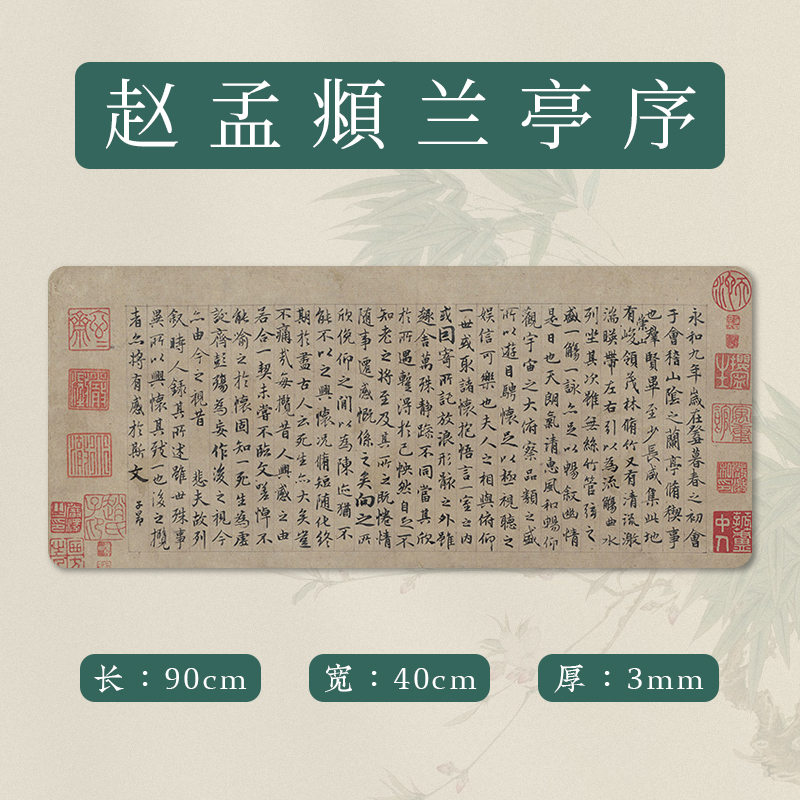 赵孟頫兰亭序
永和九年歲在癸丑暮春之初會
于會稽山陰之蘭亭脩稧事
也羣賢畢至少長咸集此地
有崇山峻領茂林脩竹又有清流激
湍暎帶左右引以為流觴曲水
列坐其次雖無絲竹管弦之
盛一觴一詠亦足以暢叙幽情
是日也天朗氣清惠風和暢仰
觀宇宙之大俯察品類之盛
所以遊目騁懷足以極視聽之
娛信可樂也夫人之相與俯仰
一世或取諸懷抱悟言一室之內
或因寄所託放浪形骸之外雖
趣舍萬殊靜躁不同當其欣
於所遇蹔得於己怏然自足不
知老之將至及其所之既惓情
隨事遷感慨係之矣向之所
欣俛仰之閒以為陳迹猶不
能不以之興懷況脩短隨化終
期於盡古人云死生亦大矣豈
不痛哉每攬昔人興感之由
若合一契未嘗不臨文嗟悼不
能喻之於懷固知一死生為虛
誕齊彭殤為妄作後之視今
亦由今之視昔 悲夫故列
叙時人錄其所述雖世殊事
異所以興懷其致一也後之攬
者亦將有感於斯文
子昂
长：90cm
宽：40cm
厚：3mm